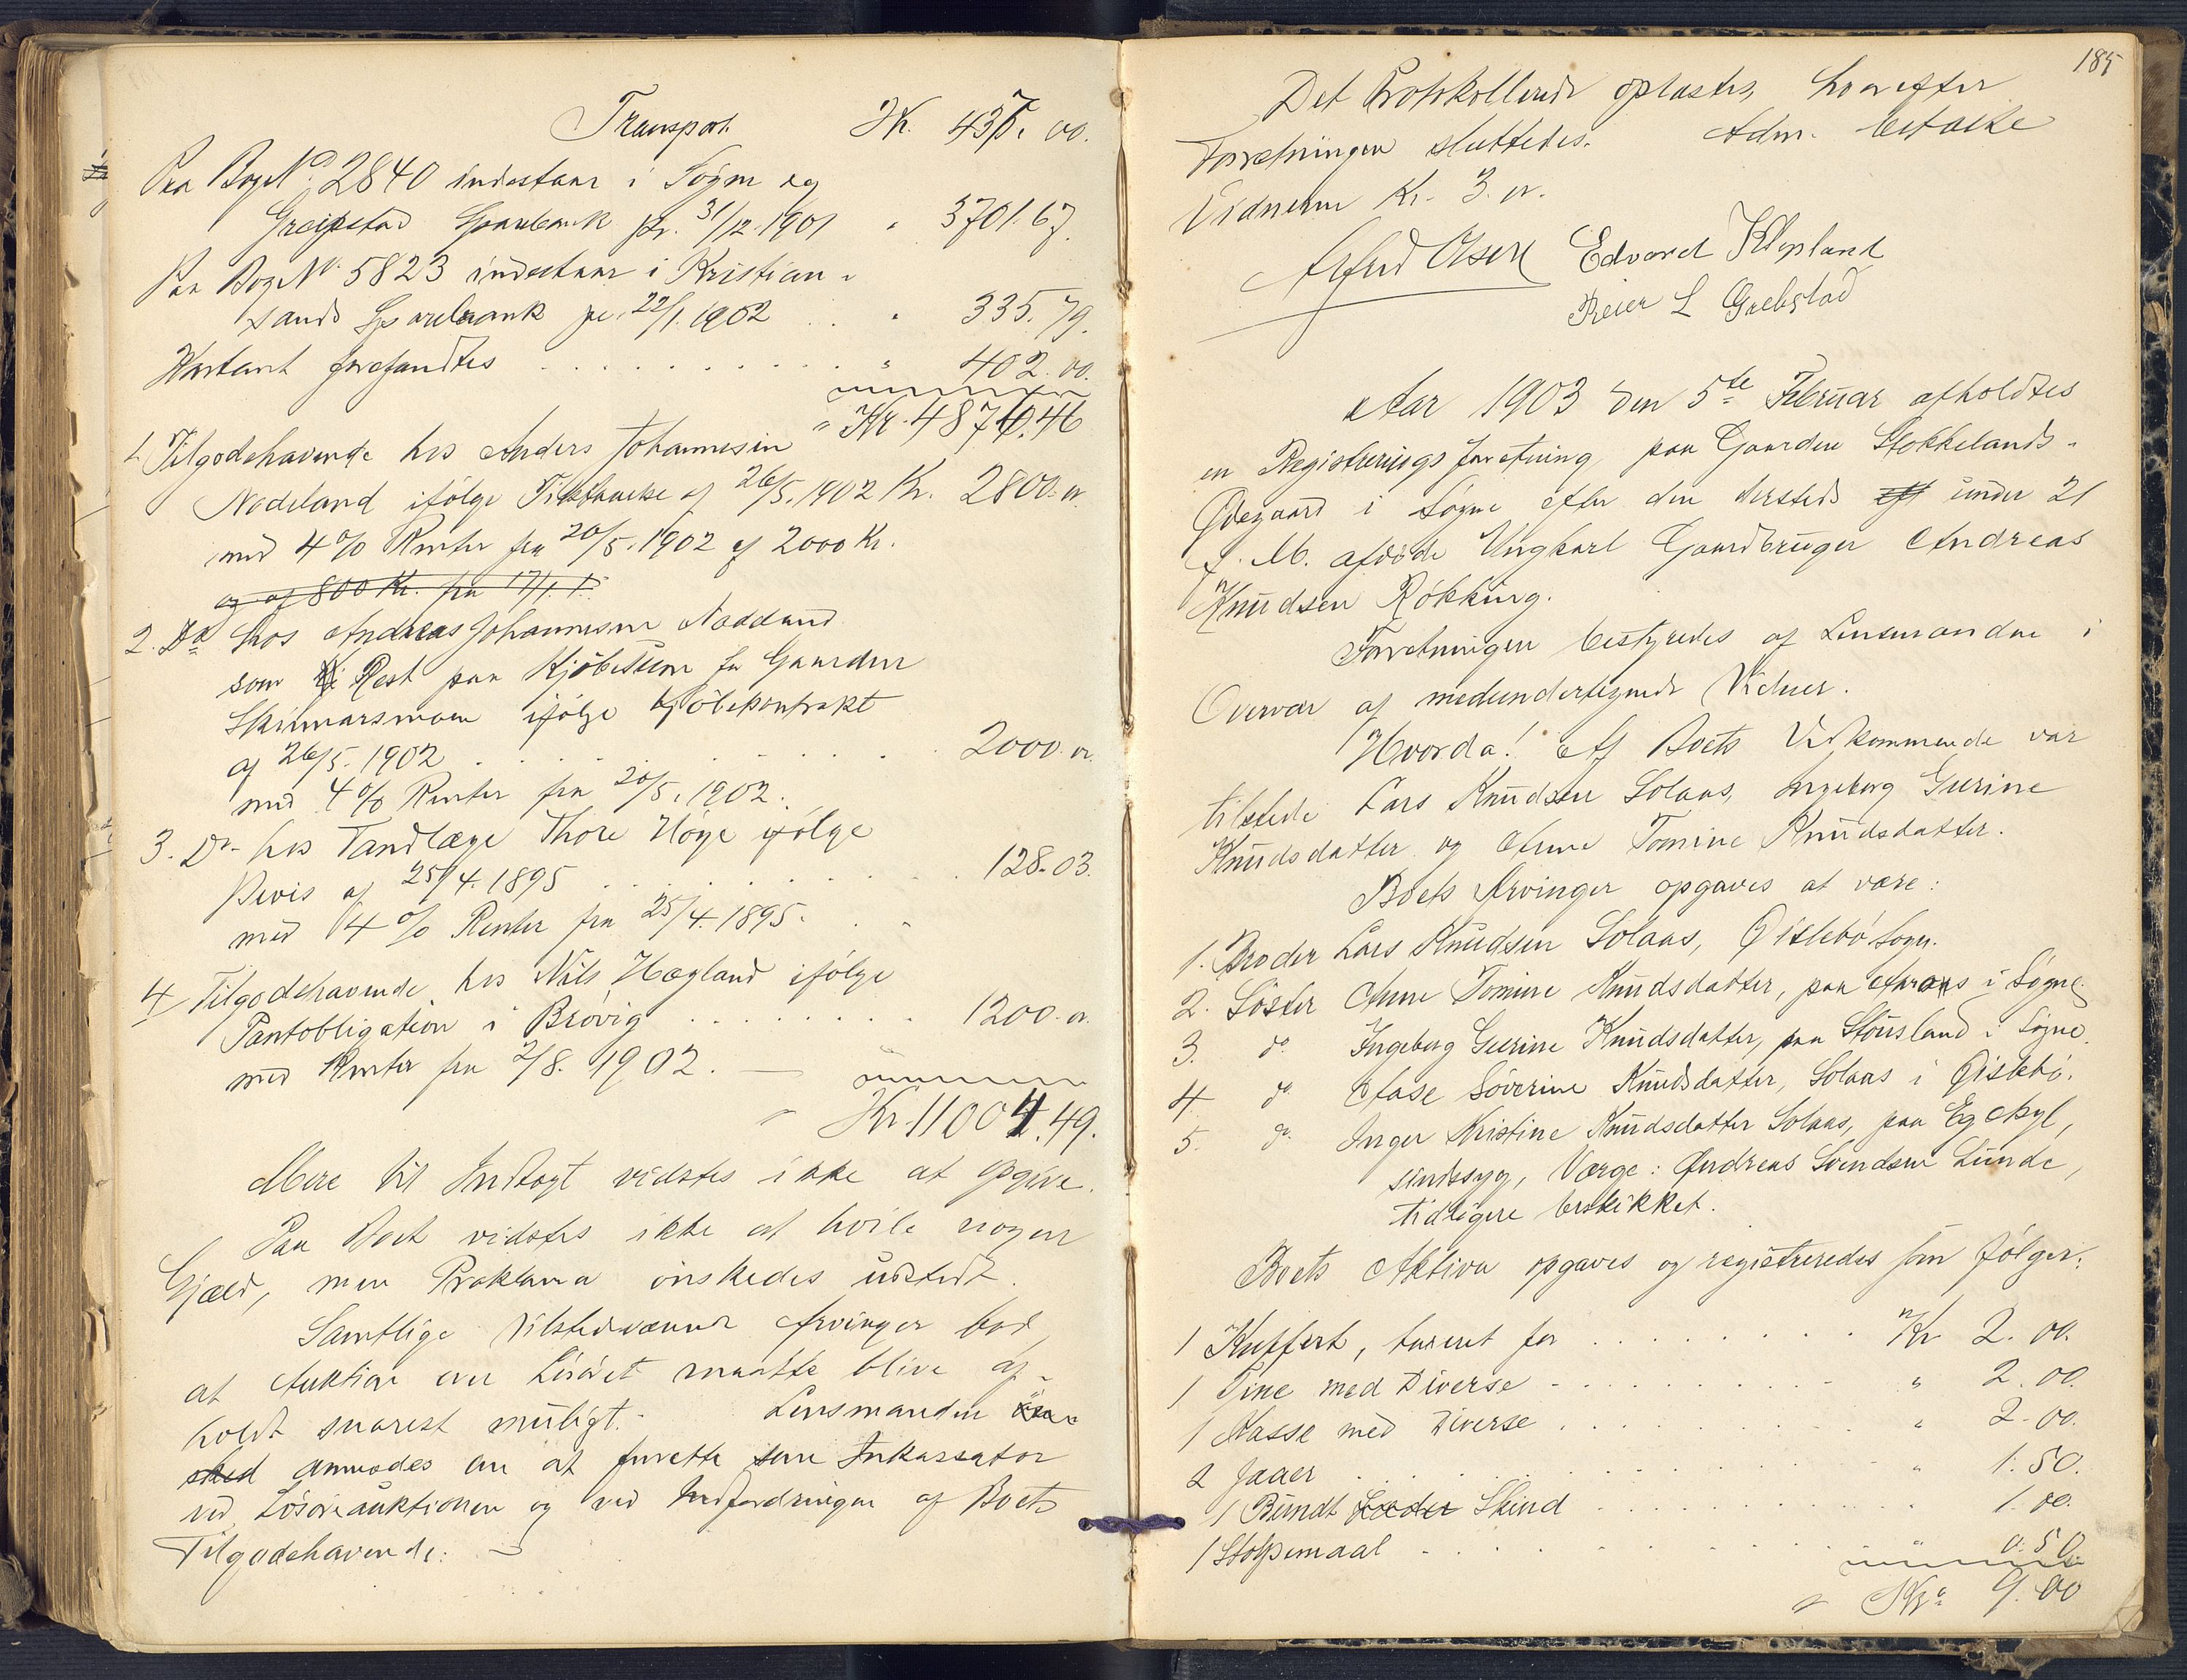 Transport Kr. 437. 00.
Paa Bog No 2840 indestaar i Søgne og
Greipstad Sparebank pr. 31/12. 1901 " 3701.67.
Paa Bog No 5823 indestaar i Kristian-
sands Sparebank pr. 22/1. 1902 . . " 335.79.
Kontant forefandtes . . . . . . . . . . " 402.00.
" Kr. 4876.46
1. Tilgodehavende hos Anders Johannesen
Nodeland ifølge Tilstaaelse af 26/5. 1902 Kr. 2800.00
med 4% Renter fra 20/5. 1902 af 2000 Kr.
og af 800 Kr. fra 17/1.
2. Do hos Andreas Johannesen
som Rest paa Kjøbesum for Gaarden
ifølge Kjøbekontrakt
af 26/5. 1902 . . . . . . . . 2000.00
med 4% Renter fra 20/5. 1902.
3. Do hos Tandlæge Thore Høye ifølge
Bevis af 25/4. 1895 . . . . . . . . . 128.03.
med 4% Renter fra 25/4. 1895.
4 Tilgodehavende hos Nils Hægland ifølge
Pantobligation i Brøvig . . . . . . . . 1200.00
med Renter fra 2/8. 1902. —
" Kr 11004.49.
Mere til Indtægt vidstes ikke at opgive.
Paa Boet vidstes ikke at hvile nogen
Gjæld, men Proklama ønskedes udstedt.
Samtlige tilstedeværende Arvinger bad
at Auktion over Løsøret maatte blive af-
holdt snarest muligt.- Lensmanden øn
sked anmodes om at forrette som Inkassator
ved Løsøreauktionen og ved Indfordringen af Boets
Tilgodehavende: —
185
Det Protokollerede oplæstes, hvorefter
Forretningen sluttedes. Adm. betalte
Vidnerne Kr. 3.00.
Alfred Olsen Edvard Klepland
Peder L Grebstad
Aar 1903 den 5te Februar afholdtes
en Registreringsforretning paa Gaarden Stokkelands-
Ødegaard i Søgne efter den dersteds eft under 21
f. M. afdøde Ungkarl Gaardbruger Andreas
Knudsen Røkking.
Forretningen bestyredes af Lensmanden i
Overvær af medundertegnede Vidner.
Hvorda! Af Boets Vedkommende var
tilstede Lars Knudsen Solaas, Ingeborg Gurine
Knudsdatter og Anne Tomine Knudsdatter.
Boets Arvinger opgaves at være:
1. Broder Lars Knudsen Solaas, Øislebø Sogn.
2. Søster Anne Tomine Knudsdatter, paa Aaros i Søgne.
3. do. Ingeborg Gurine Knudsdatter, paa Stousland i Søgne.
4. do. Aase Søverine Knudsdatter, Solaas i Øislebø.
5. do. Inger Kristine Knudsdatter Solaas, paa Eg Asyl,
sindssyg, Værge: Andreas Svendsen Lunde,
tidligere beskikket.
Boets Aktiva opgaves og registreredes som følger:
1 Kuffert, taxeret for . . . . . . . . . Kr 2.00.
1 Tine med Diverse . . . . . . . . . . " 2.00.
1 Kasse med Diverse . . . . . . . . . " 2.00.
2 Faaer . . . . . . . . . . . . . . " 1.50.
1 Bundt Læder Skind . . . . . . . . . 1.00.
1 Stolpemaal . . . . . . . . . . . . " 0.50.
" Kr. 9.00